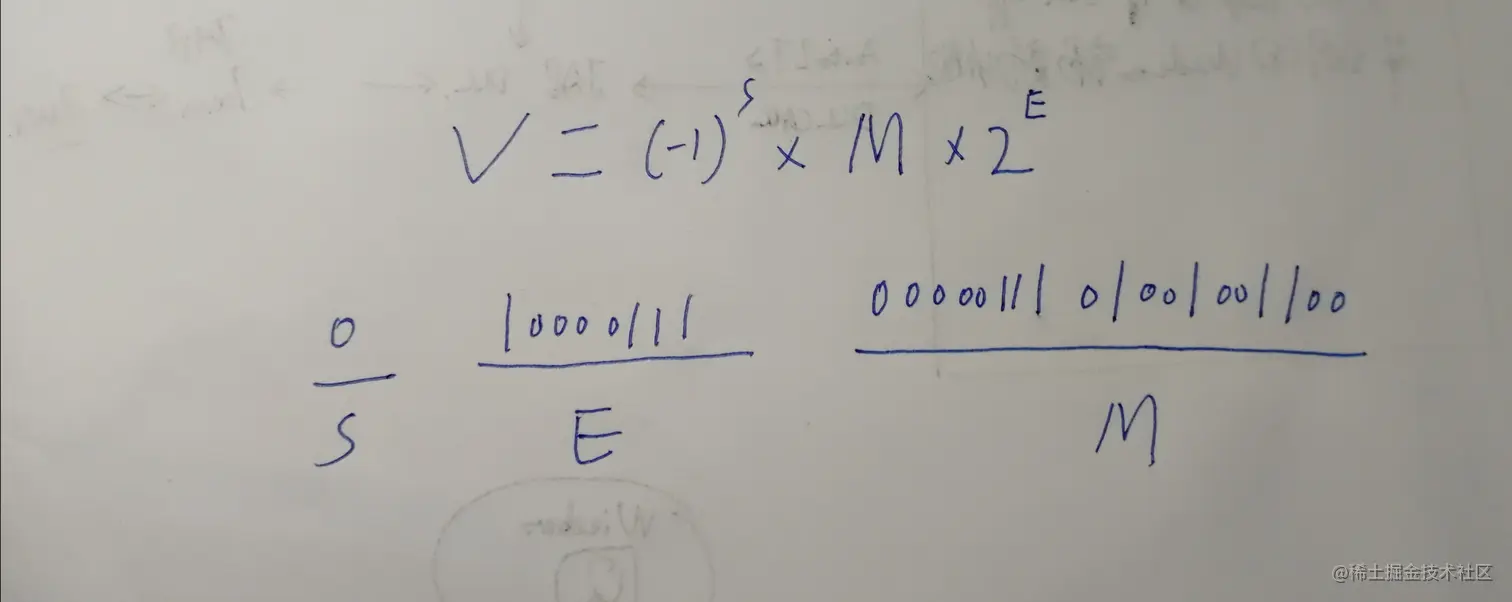 V = (-1)^S × M × 2^E
0 10000111 00000111 01001001100
S E M
@稀土掘金技术社区